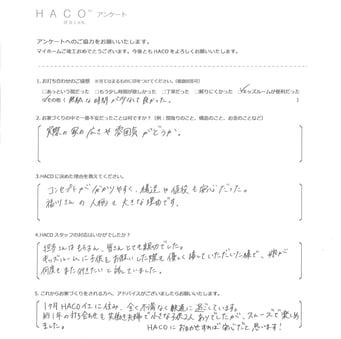 HACO アンケート
アンケートへのご協力をお願いいたします。
マイホームご竣工おめでとうございます。今後ともHACOをよろしくお願いいたします。
1. お打ち合わせのご感想
□あっという間だった □もう少し時間が欲しかった □丁寧だった □頼りにくかった ☑キッズルームが便利だった
☑その他( 無駄な時間が少なくて良かった。 )
2. お家づくりの中で一番不安だったことは何ですか？(例：間取りのこと、構造のこと、お金のことなど)
実際の家の広さや雰囲気がどうか。
3. HACOに決めた理由を教えてください。
コンセプトが分かりやすく、構造や値段も安心だった。
福川さんの人柄も大きな理由です。
4. HACOスタッフの対応はいかがでしたか？
担当さんはもちろん、皆さんとても親切でした。
キッズルームに子供をお願いした際も優しく接していただいた様で、娘が
何度もまた行きたいと話していました。
5. これからお家づくりをされる方へ、アドバイスがございましたらお願いいたします。
1ヶ月HACOの家に住み、全く不満なく快適に過ごしています。
約1年の打ち合わせも共働き夫婦で小さな子供2人ありでしたが、スムーズで楽しめ
ました。 HACOにおまかせすれば安心だと思います！